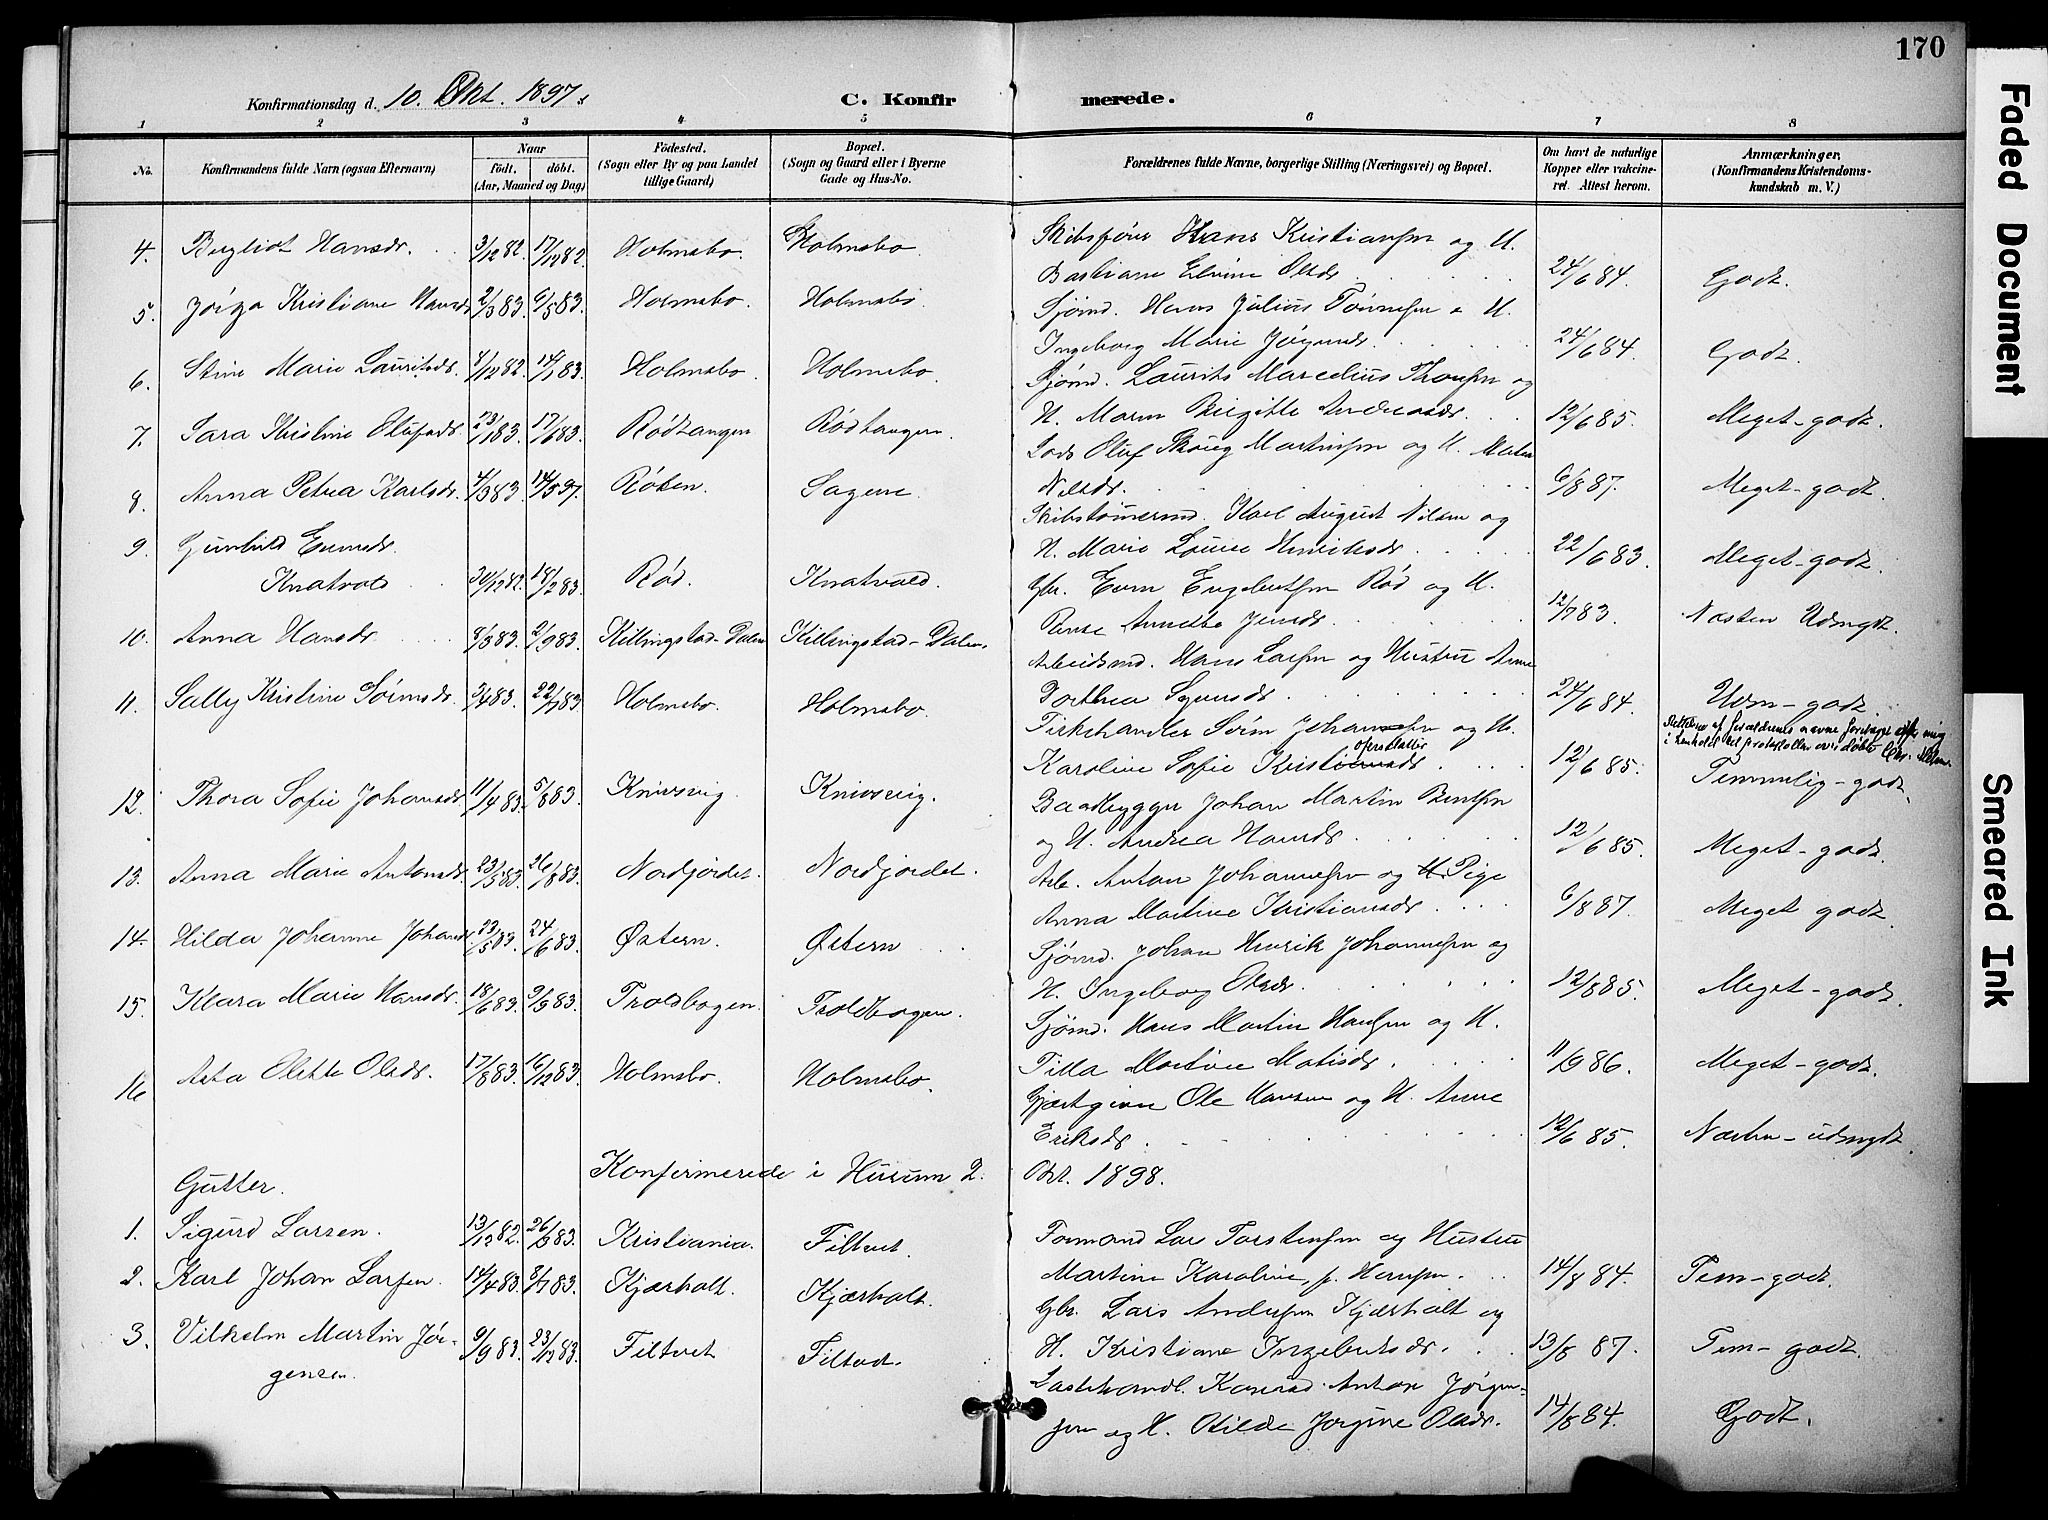 170
Konfirmationsdag d. 10. Okt. 1897.
C. Konfirmerede.
1 2 3 4 5 6 7 8
No.
Konfirmandens fulde Navn (ogsaa Efternavn)
Naar
født. døbt.
(Aar, Maaned og Dag)
Fødested.
(Sogn eller By og paa Landet
tillige Gaard)
Bopæl.
(Sogn og Gaard eller i Byerne
Gade og Hus-No.
Forældrenes fulde Navne, borgerlige Stilling (Næringsvei) og Bopæl.
Om havt de naturlige
Kopper eller vakcine-
ret. Attest herom.
Anmærkninger.
(Konfirmandens Kristendoms-
kundskab m. V.)
4. Bergliot Hansdr. 3/12 82. 17/12 82. Holmsbo. Holmsbo. Skibsfører Hans Kristiansen og H.
Bastiane Elvine Olsdr. 24/6 84. Godt.
5. Kristiane Hansdr. 2/3 83. 6/5 83. Holmsbo. Holmsbo. Sjømd. Hans Julius Tønnesen o H.
Ingeborg Marie 24/6 84. Godt.
6. Stine Marie Lauritsdr. 4/12 82. 14/1 83. Holmsbo. Holmsbo. Sjømd. Laurits Marcelius Thorsen og
H. Maren Birgitte Andreasdr. 12/6 85. Meget-godt.
7. Sara Kristine Olufsdr. 23/1 83. 17/6 83. Rødtangen Rødtangen. Lods Oluf Skoug Martinsen og H. Maren
Nilsdr. 6/8 87. Meget-godt.
8. Anna Petrea Karlsdr. 4/3 83. 14/5 97. Røken. Sagene. Skibstømermd. Karl August Nilsen og
H. Marie Louise Henriksdr. 22/6 83. Meget-godt.
9. Gunhild Evensdr.
Knatvold 30/12 82. 18/2 83. Rød. Knatvold. Gbr. Even Engebretsen Rød og H.
Annette Jensdr. 12/7 83. Næsten Udmgdt.
10. Anna Hansdr. 8/3 83. 2/9 83. Killingstad-Dalen Killingstad-Dalen. Arbeidsmd. Hans Larsen og Hustru Anne
Dorthea 24/6 84. Udm-godt.
11. Sally Kristine Sørensdr. 3/4 83. 22/7 83. Holmsbo. Holmsbo. Søren Johannesen og H.
Karoline Sofie 12/6 85. Temmelig-godt.
af forældrenes navne foretaget af mig
i henhold til protokollen over døbte
12. Thora Sofie Johansdr. 11/4 83. 5/8 83. Knivsvig. Knivsvig. Baadbygger Johan Martin Bentsen
og H. Andrea Hansdr. 12/6 85. Meget-godt.
13. Anna Marie Antonsdr. 23/5 83. 26/8 83. Nordjordet. Nordjordet. Arb. Anton Johannesen og H. Pige
Anna Martine Kristiansdr. 6/8 87. Meget godt.
14. Hilda Johanne Johansdr 23/5 83. 24/6 83. Østern. Østern Sjømd. Johan Henrik Johannesen og
H. Ingeborg Olsdr. 12/8 85. Meget-godt.
15. Klara Marie Hansdr. 18/6 83. 9/9 83. Troldbogen. Troldbogen. Sjømd. Hans Martin Hansen og H.
Tilla Martine Matisdr. 11/9 86. Meget-godt.
16 Asta Olette Olsdr. 17/8 83. 16/12 83. Holmsbo. Holmsbo. Gjæstgiver Ole Hansen og H. Anne
Eriksdr. 12/6 85. Næsten-udmgdt
Konfirmerede i Hurum 2. Okt. 1898.
Gutter.
1. Sigurd Larsen. 13/12 82. 26/3 83. Kristiania. Filtvet. Formand Lars Torstensen og Hustru
Martine Karoline, f. Hansen. 14/8 84. Tem-godt.
2. Karl Johan Larsen. 14/4 83. 8/7 83. Kjærholt. Kjærholt. Gbr. Lars Andersen Kjærholt og
H. Kristiane Ingebretsdr. 13/8 87. Tem-godt.
3. Vilhelm Martin Jør-
gensen. 9/9 83. 23/12 83. Filtvet Filtvet. Lastehandl. Konrad Anton Jørgen-
sen og H. Otilde Jørgine Olsdr. 14/8 84. Godt.
Faded Document
Smeared Ink